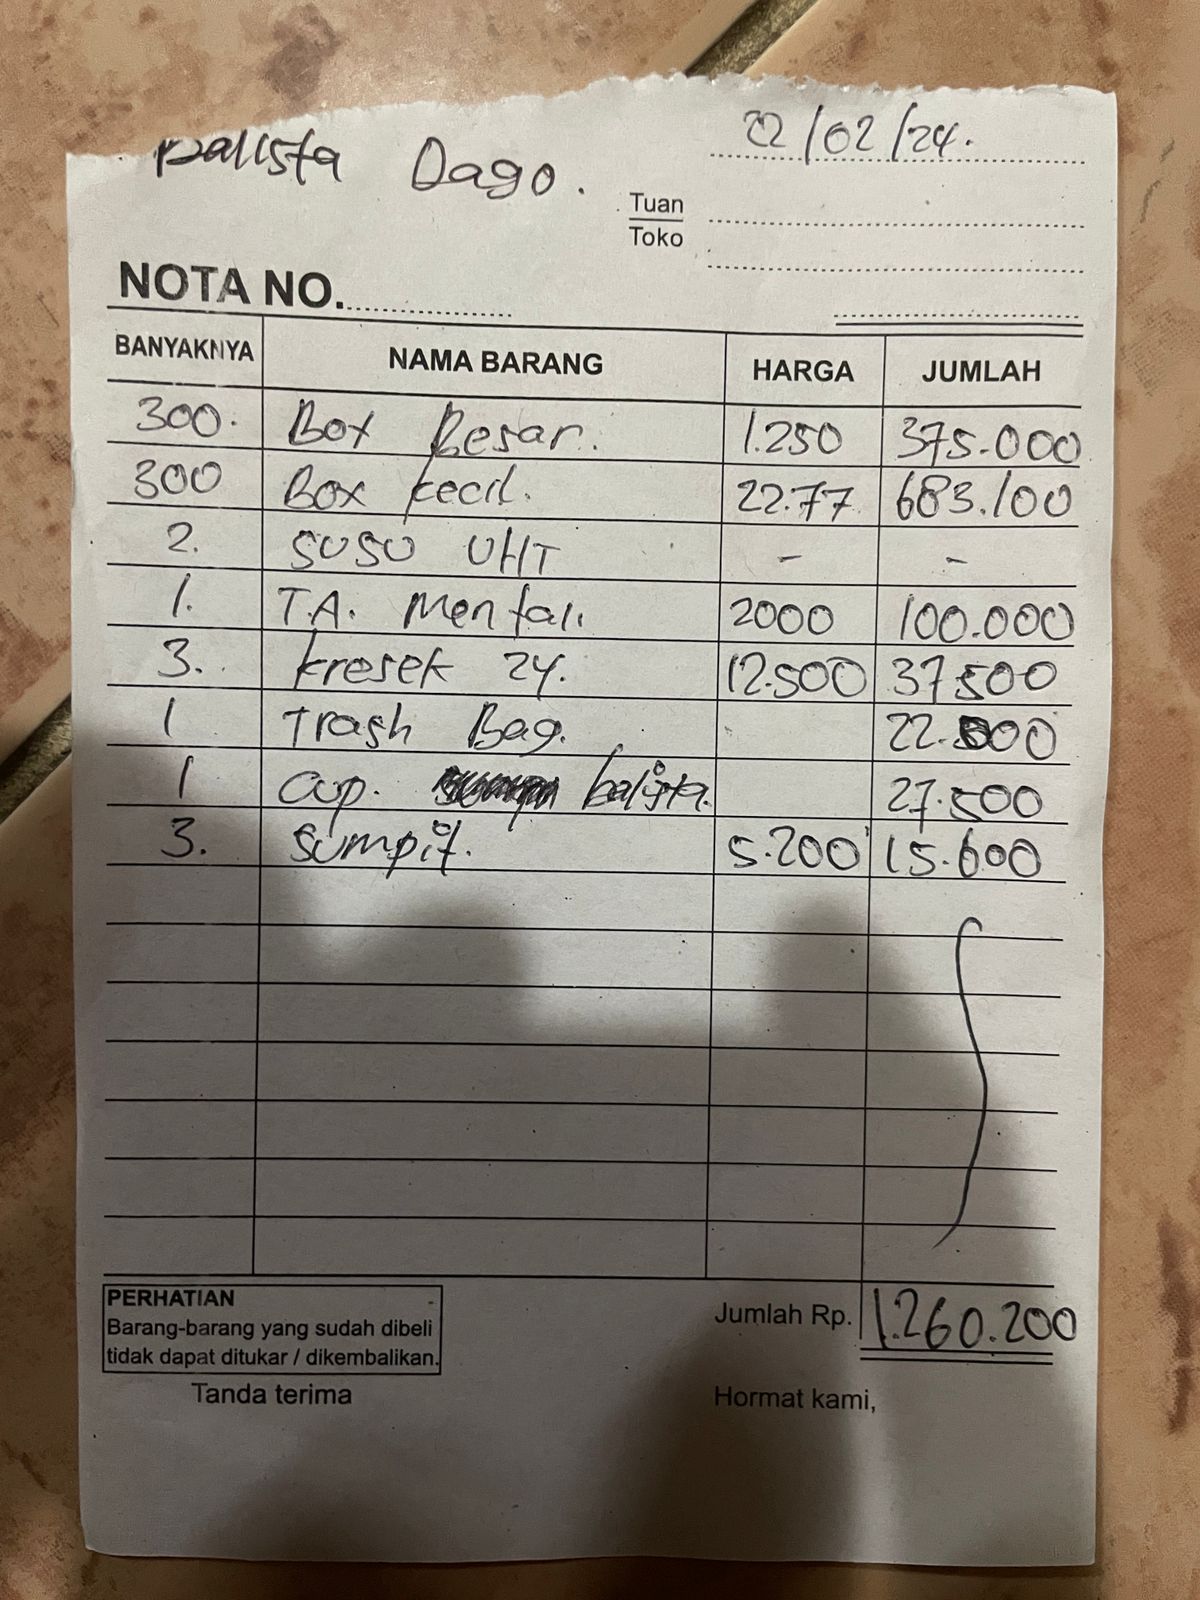 Balista Dago.
22/02/24.
Tuan
Toko
NOTA NO.
BANYAKNYA NAMA BARANG HARGA JUMLAH
300. Box Besar. 1.250 375.000
300 Box kecil. 22.77 683.100
2. SUSU UHT - -
1. T.A. Mentali 2000 100.000
3. kresek 24. 12.500 37500
1 Trash Bag. 22.500
1 Cup. balista. 27.500
3. Sumpit. 5.200 15.600
PERHATIAN
Barang-barang yang sudah dibeli
tidak dapat ditukar / dikembalikan.
Jumlah Rp. 1.260.200
Tanda terima Hormat kami,